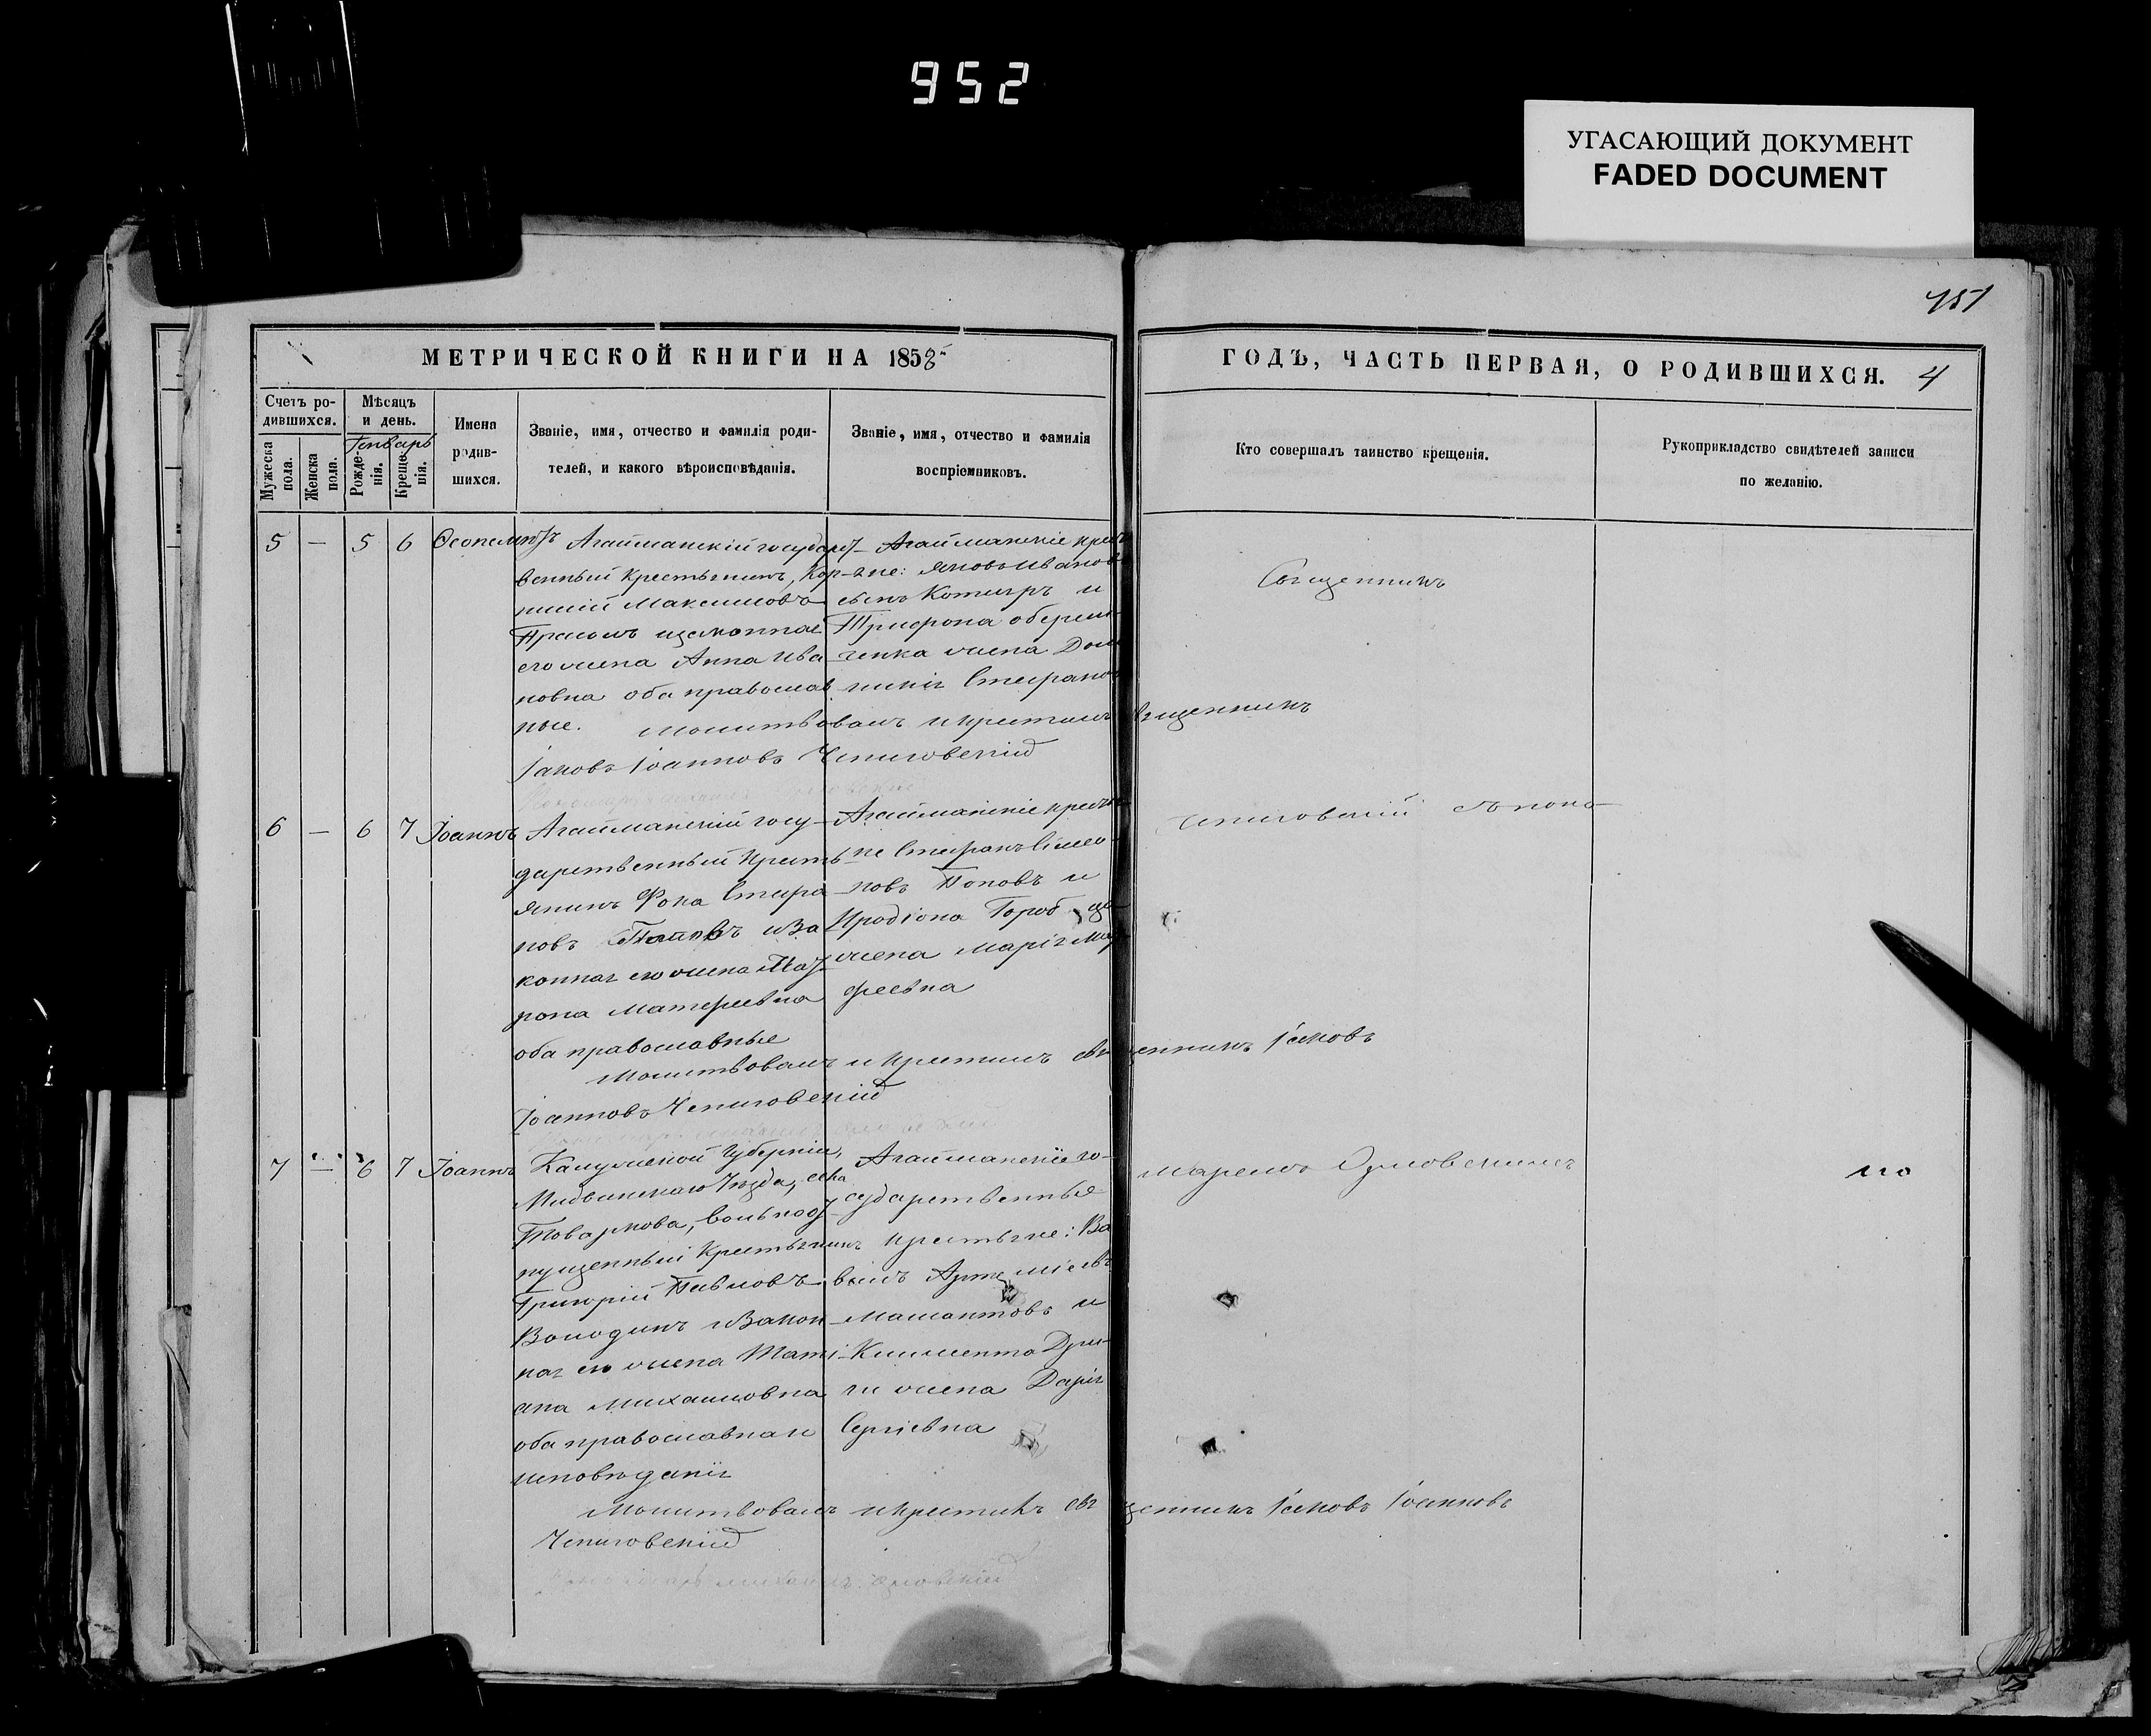 952
УГАСАЮЩИЙ ДОКУМЕНТ
FADED DOCUMENT
951
МЕТРИЧЕСКОЙ КНИГИ НА 1858
ГОДЪ, ЧАСТЬ ПЕРВАЯ, О РОДИВШИХСЯ. 4
Счетъ ро-
дившихся.
Мужеска
пола.
Женска
пола.
Мѣсяцъ
и день.
Генварь
Рожде-
нія.
Креще-
нія.
Имена
родив-
шихся.
Званіе, имя, отчество и фамилія роди-
телей, и какого вѣроисповѣданія.
Званіе, имя, отчество и фамилія
воспріемниковъ.
Кто совершалъ таинство крещенія.
Рукоприкладство свидѣтелей записи
по желанію.
5 — 5 6 Ѳеопемптъ
Агайманскій государст-
венный Крестьянинъ, Кор-
нилій Максимовъ
и законная
его жена Анна Ива
новна оба православ
ные.
Агайманскіе крест
яне: Яковъ Иванов
сынъ и
Трифона
ченка жена Дом
никія Стефанов
Священникъ
Молитвовалъ и крестилъ Священникъ
Іаковъ Іоанновъ Чепиговскій
6 — 6 7 Іоаннъ
Агайманскій госу-
дарственный Кресть
янинъ Фока Стефа
новъ Поповъ и за
конная его жена Мат
рона Матфеевна
оба православные
Агайманскіе крестья
не Стефанъ Симео
новъ Поповъ и
Иродіона
жена Марія Мат
феевна
Чепиговскій
Молитвовалъ и крестилъ священникъ Іаковъ
Іоанновъ Чепиговскій
7 — 6 7 Іоаннъ
Калужской Губерніи,
Мидынскаго Уѣзда, села
Товаркова, вольноот
пущенный Крестьянинъ
Григорій Павловъ
Володинъ и закон
ная его жена Тати
ана Михайловна
оба православнаго
исповѣданія
Агайманскіе го-
сударственные
крестьяне: Ва
вилъ Артеміевъ
Малантовъ и
Климента Дри-
ги жена Дарія
Сергіевна
по
Молитвовалъ и крестилъ священникъ Іаковъ Іоанновъ
Чепиговскій